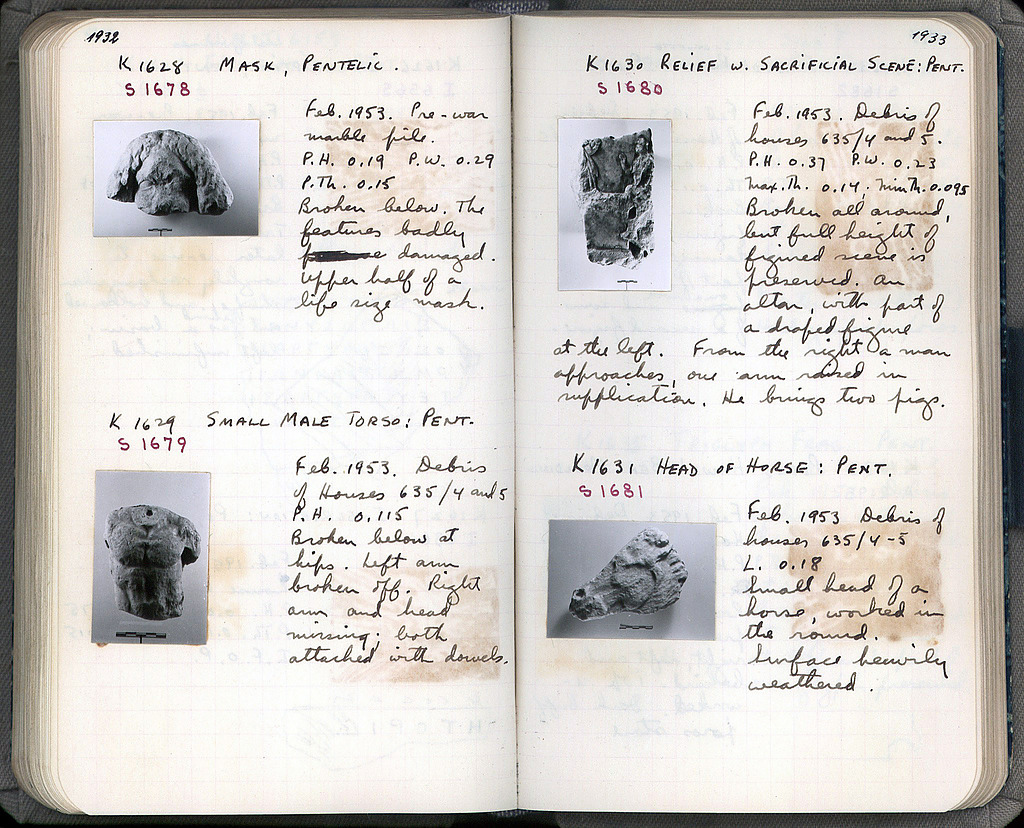 1932
K 1628 MASK, PENTELIC.
S 1678
Feb. 1953. Pre-war
marble pile.
P.H. 0.19 P.W. 0.29
P.Th. 0.15
Broken below. The
features badly
damaged.
Upper half of a
life size mask.
K 1629 SMALL MALE TORSO: PENT.
S 1679
Feb. 1953. Debris
of Houses 635/4 and 5
P.H. 0.115
Broken below at
hips. Left arm
broken off. Right
arm and head
missing; both
attached with dowels.
1933
K 1630 RELIEF W. SACRIFICIAL SCENE: PENT.
S 1680
Feb. 1953. Debris of
houses 635/4 and 5.
P.H. 0.37 P.W. 0.23
Max.Th. 0.14. Min Th. 0.095
Broken all around,
but full height of
figured scene is
preserved. An
altar, with part of
a draped figure
at the left. From the right a man
approaches, one arm raised in
supplication. He brings two pigs.
K 1631 HEAD OF HORSE: PENT.
S 1681
Feb. 1953 Debris of
houses 635/4-5
L. 0.18
Small head of a
horse, worked in
the round.
Surface heavily
weathered.